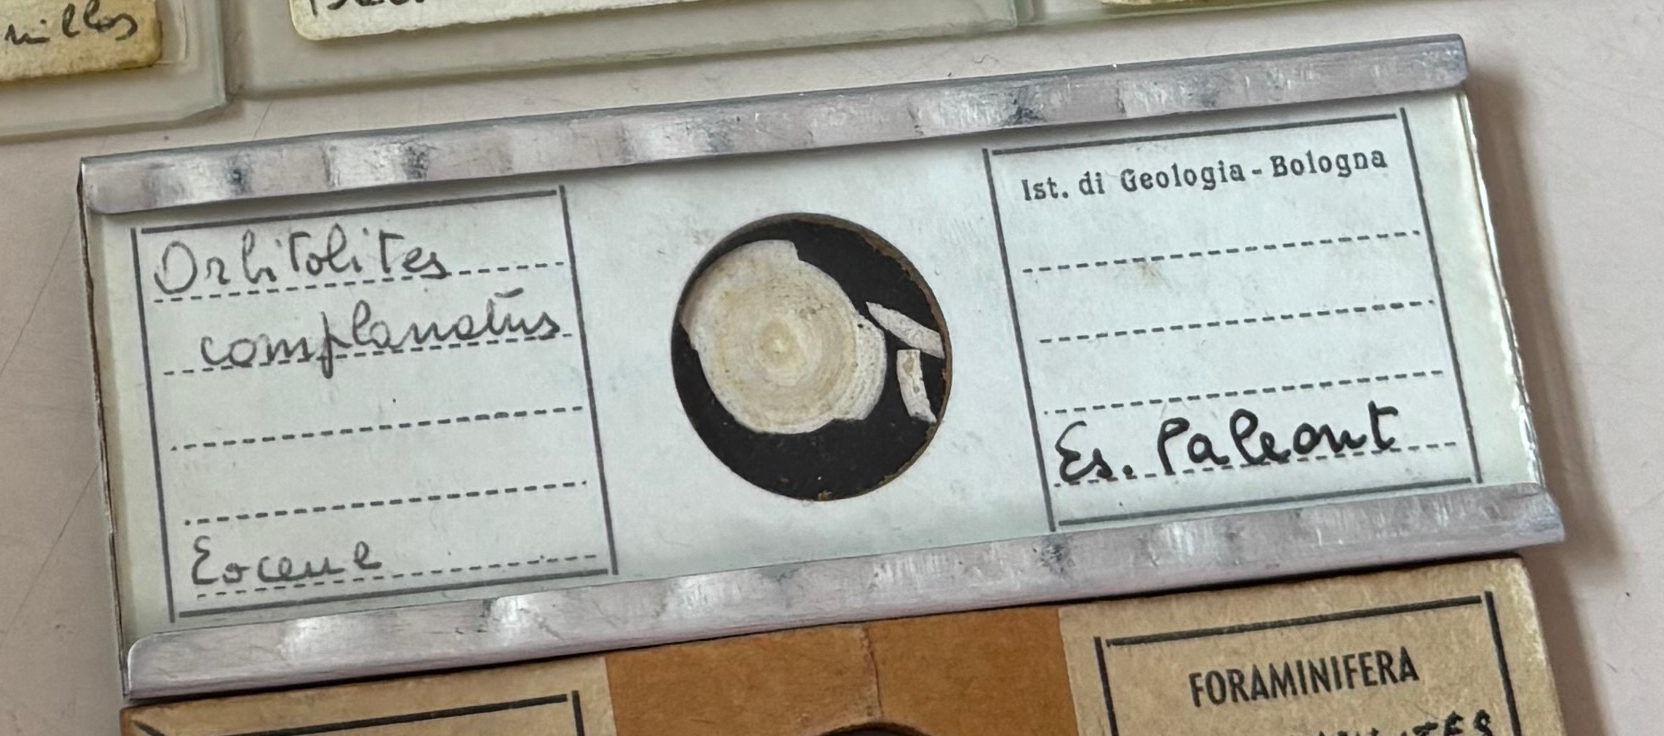 Orbitolites
complanatus
Eocene
Ist. di Geologia - Bologna
Es. Paleont
FORAMINIFERA